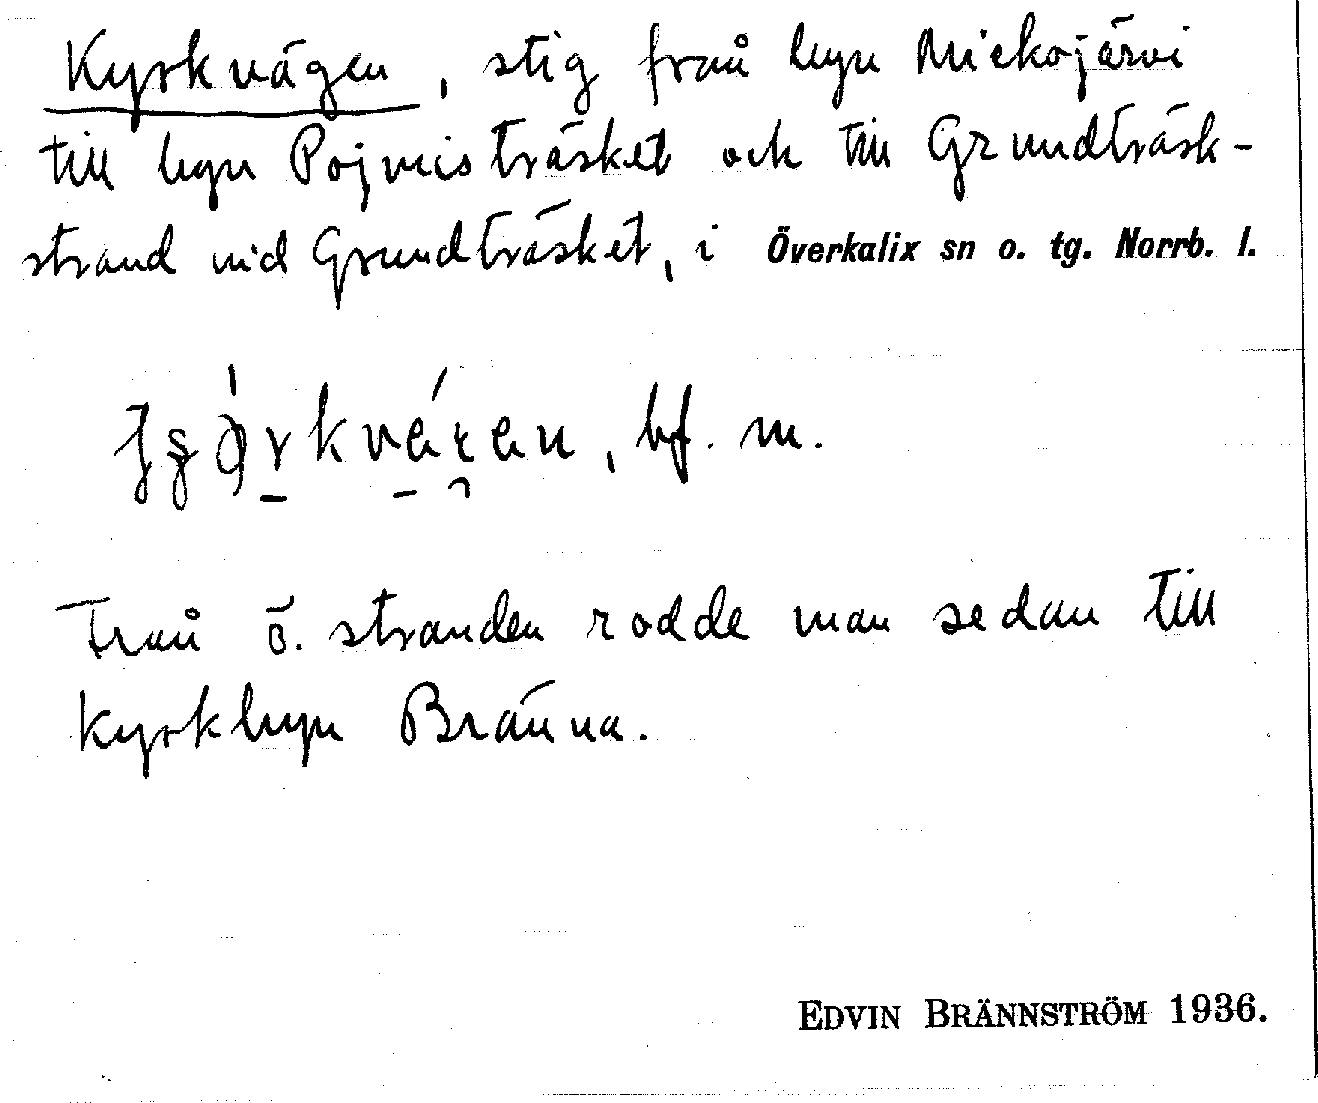 Kyrkvägen, stig från byn Miekojärvi
till byn Pojmisträsket och till Grundträsk-
strand vid Grundträsket, i Överkalix sn o. tg. Norrb. l.
bf. m.
Från ö. stranden rodde man sedan till
kyrkbyn Bränna.
EDVIN BRÄNNSTRÖM 1936.